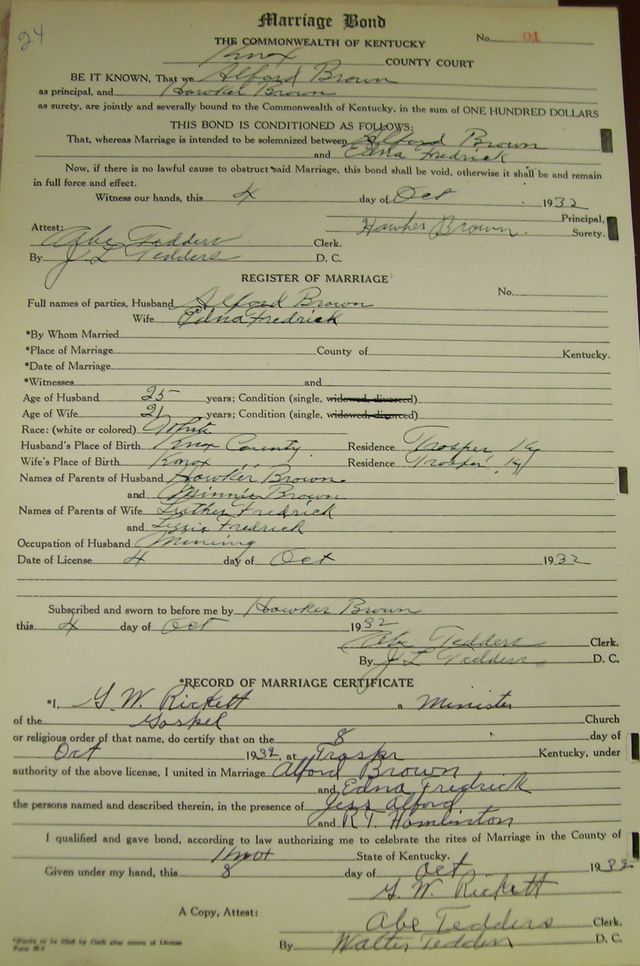 24
Marriage Bond
THE COMMONWEALTH OF KENTUCKY
No. 91
Knox COUNTY COURT
BE IT KNOWN, That we Alford Brown
as principal, and Hawker Brown
as surety, are jointly and severally bound to the Commonwealth of Kentucky, in the sum of ONE HUNDRED DOLLARS
THIS BOND IS CONDITIONED AS FOLLOWS:
That, whereas Marriage is intended to be solemnized between Alford Brown
and Edna Fredrick
Now, if there is no lawful cause to obstruct said Marriage, this bond shall be void, otherwise it shall be and remain
in full force and effect.
Witness our hands, this 4 day of Oct 1932
Principal,
Attest: Hawker Brown. Surety.
Abe Tedders Clerk.
By J L Tedders D. C.
REGISTER OF MARRIAGE
No.
Full names of parties, Husband Alford Brown
Wife Edna Fredrick
*By Whom Married
*Place of Marriage County of Kentucky.
*Date of Marriage
*Witnesses and
Age of Husband 25 years; Condition (single, widowed, divorced)
Age of Wife 21 years; Condition (single, widowed, divorced)
Race: (white or colored) White
Husband's Place of Birth Knox County Residence Trosper Ky
Wife's Place of Birth Knox " Residence Trosper Ky
Names of Parents of Husband Hawker Brown
and Minnie Brown
Names of Parents of Wife Luther Fredrick
and Lissie Fredrick
Occupation of Husband Mineing
Date of License 4 day of Oct 1932
Subscribed and sworn to before me by Hawker Brown
this 4 day of Oct 1932
Abe Tedders Clerk.
By J L Tedders D. C.
*RECORD OF MARRIAGE CERTIFICATE
*I, G. W. Rickett a Minister
of the Gospel Church
or religious order of that name, do certify that on the 8 day of
Oct 1932, at Trospr Kentucky, under
authority of the above license, I united in Marriage Alford Brown
and Edna Fredrick
the persons named and described therein, in the presence of Jess Alford
and R.T. Hamlinton
I qualified and gave bond, according to law authorizing me to celebrate the rites of Marriage in the County of
Knox State of Kentucky.
Given under my hand, this 8 day of Oct 1932
G. W. Rickett
A Copy, Attest:
Abe Tedders Clerk.
By Walter Tedders D. C.
*Blanks to be filled by Clerk after return of License
Form M-1